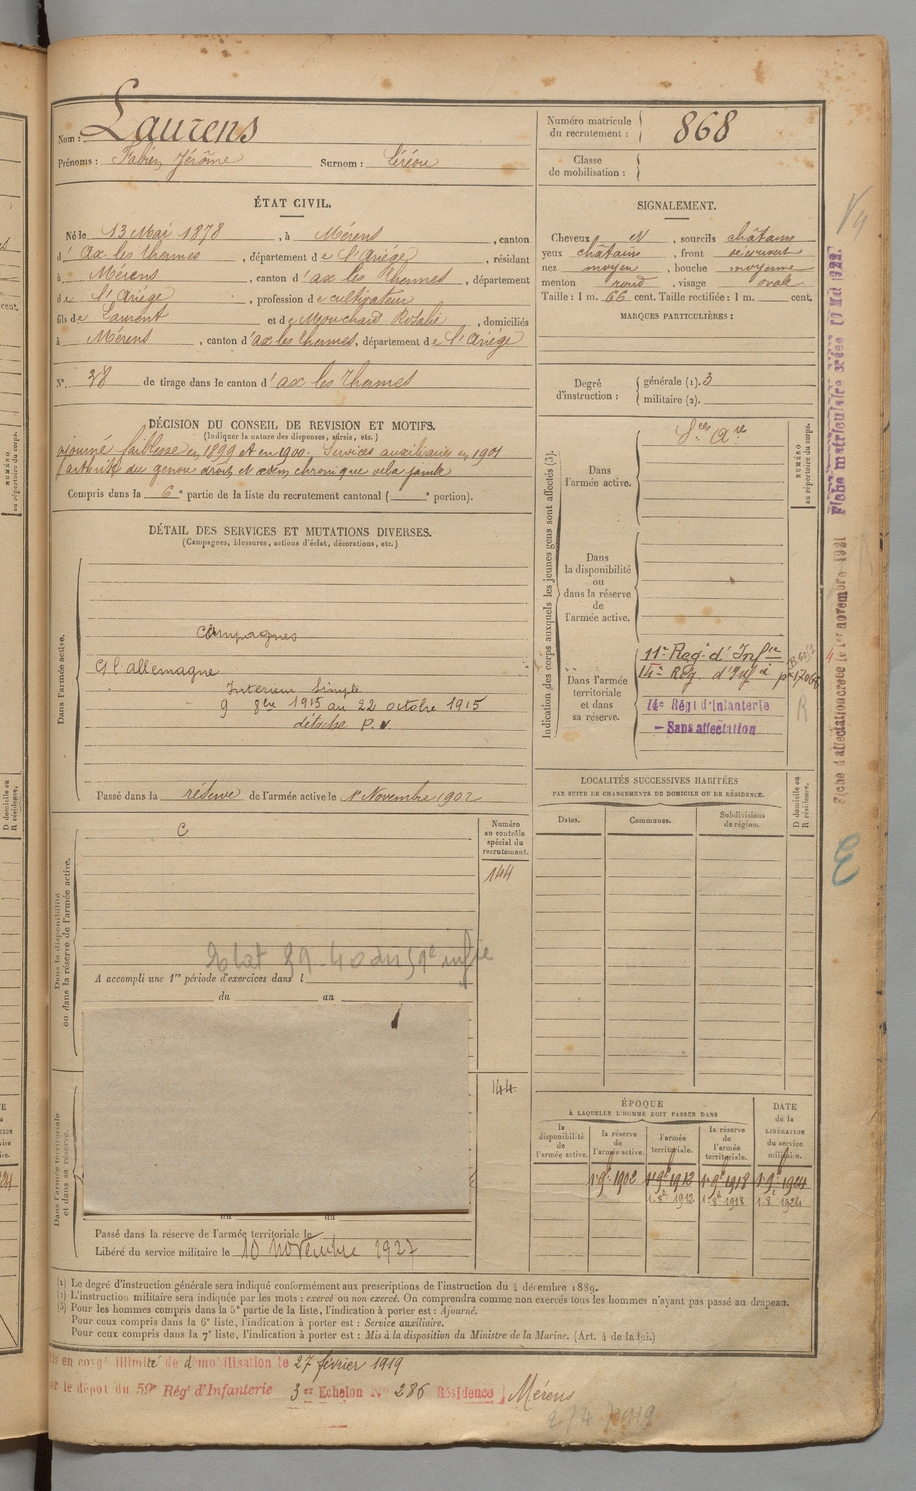 Nom : Laurens
Prénoms : Fabien Jérôme Surnom :
ÉTAT CIVIL.
Né le 13 Mai 1878, à Mérens, canton
d' ax les thermes, département de l'Ariége, résidant
à Mérens, canton d'ax les Thermes, département
de l'Ariége, profession de cultivateur
fils de Laurent et de Mouchard Rosalie, domiciliés
à Mérens, canton d'ax les thermes, département de l'Ariége
N° 28 de tirage dans le canton d'ax les Thermes
DÉCISION DU CONSEIL DE REVISION ET MOTIFS.
(Indiquer la nature des dispenses, sursis, etc.)
ajourné faiblesse en 1899 et en 1900. Services auxiliaires en 1901
du genou droit et œdem chronique de la jambe
Compris dans la 6e partie de la liste du recrutement cantonal ( e portion).
DÉTAIL DES SERVICES ET MUTATIONS DIVERSES.
(Campagnes, blessures, actions d'éclat, décorations, etc.)
Dans l'armée active.
Campagnes
Ct l'allemagne
Interieur Simple
9 8bre 1915 au 22 octobre 1915
détaché P.V.
Passé dans la réserve de l'armée active le 1er Novembre 1902
Dans la disponibilité
ou dans la réserve de l'armée active.
C
Numéro
au contrôle
spécial du
recrutement.
144
A accompli une 1re période d'exercices dans l
du au
144
Dans l'armée territoriale
et dans sa réserve.
du au
Passé dans la réserve de l'armée territoriale le
Libéré du service militaire le 10 novembre 1927
Numéro matricule
du recrutement : 868
Classe
de mobilisation :
SIGNALEMENT.
Cheveux et, sourcils châtains
yeux châtains, front découvert
nez moyen, bouche moyenne
menton rond, visage ovale
Taille : 1 m. 66 cent. Taille rectifiée : 1 m. cent.
MARQUES PARTICULIÈRES :
Degré
d'instruction :
générale (1). 3
militaire (2).
Indication des corps auxquels les jeunes gens sont affectés (3).
Dans
l'armée active.
Sces Ares
NUMÉRO
au répertoire du corps.
Dans
la disponibilité
ou
dans la réserve
de
l'armée active.
Dans l'armée
territoriale
et dans
sa réserve.
11e Reg. d'Infie
14e Reg. d'Infie
14e Régt d'Infanterie
– Sans affectation
LOCALITÉS SUCCESSIVES HABITÉES
PAR SUITE DE CHANGEMENTS DE DOMICILE OU DE RÉSIDENCE.
D domicile ou
R résidence.
Dates. Communes. Subdivisions
de région.
ÉPOQUE
À LAQUELLE L'HOMME DOIT PASSER DANS
DATE
de la
LIBÉRATION
du service
militaire.
la
disponibilité
de
l'armée active.
la réserve
de
l'armée active.
l'armée
territoriale.
la réserve
de
l'armée
territoriale.
1. 9e 1902 1. 9e 1912 1. 9e 1918 1. 9e 1924
1. 8e 1912 1. 8e 1918 1. 8e 1924
(1) Le degré d'instruction générale sera indiqué conformément aux prescriptions de l'instruction du 4 décembre 1889.
(2) L'instruction militaire sera indiquée par les mots : exercé ou non exercé. On comprendra comme non exercés tous les hommes n'ayant pas passé au drapeau.
(3) Pour les hommes compris dans la 5e partie de la liste, l'indication à porter est : Ajourné.
Pour ceux compris dans la 6e liste, l'indication à porter est : Service auxiliaire.
Pour ceux compris dans la 7e liste, l'indication à porter est : Mis à la disposition du Ministre de la Marine. (Art. 4 de la loi.)
en congé illimité de démobilisation le 27 février 1919
le dépot du 59e Régt d'Infanterie 3er Echelon No 286 Résidence Mérens
2/4/1919
Fiche matriculaire créée 17 Mai 1922.
Fiche d'affectation créée le 1er novembre 1921